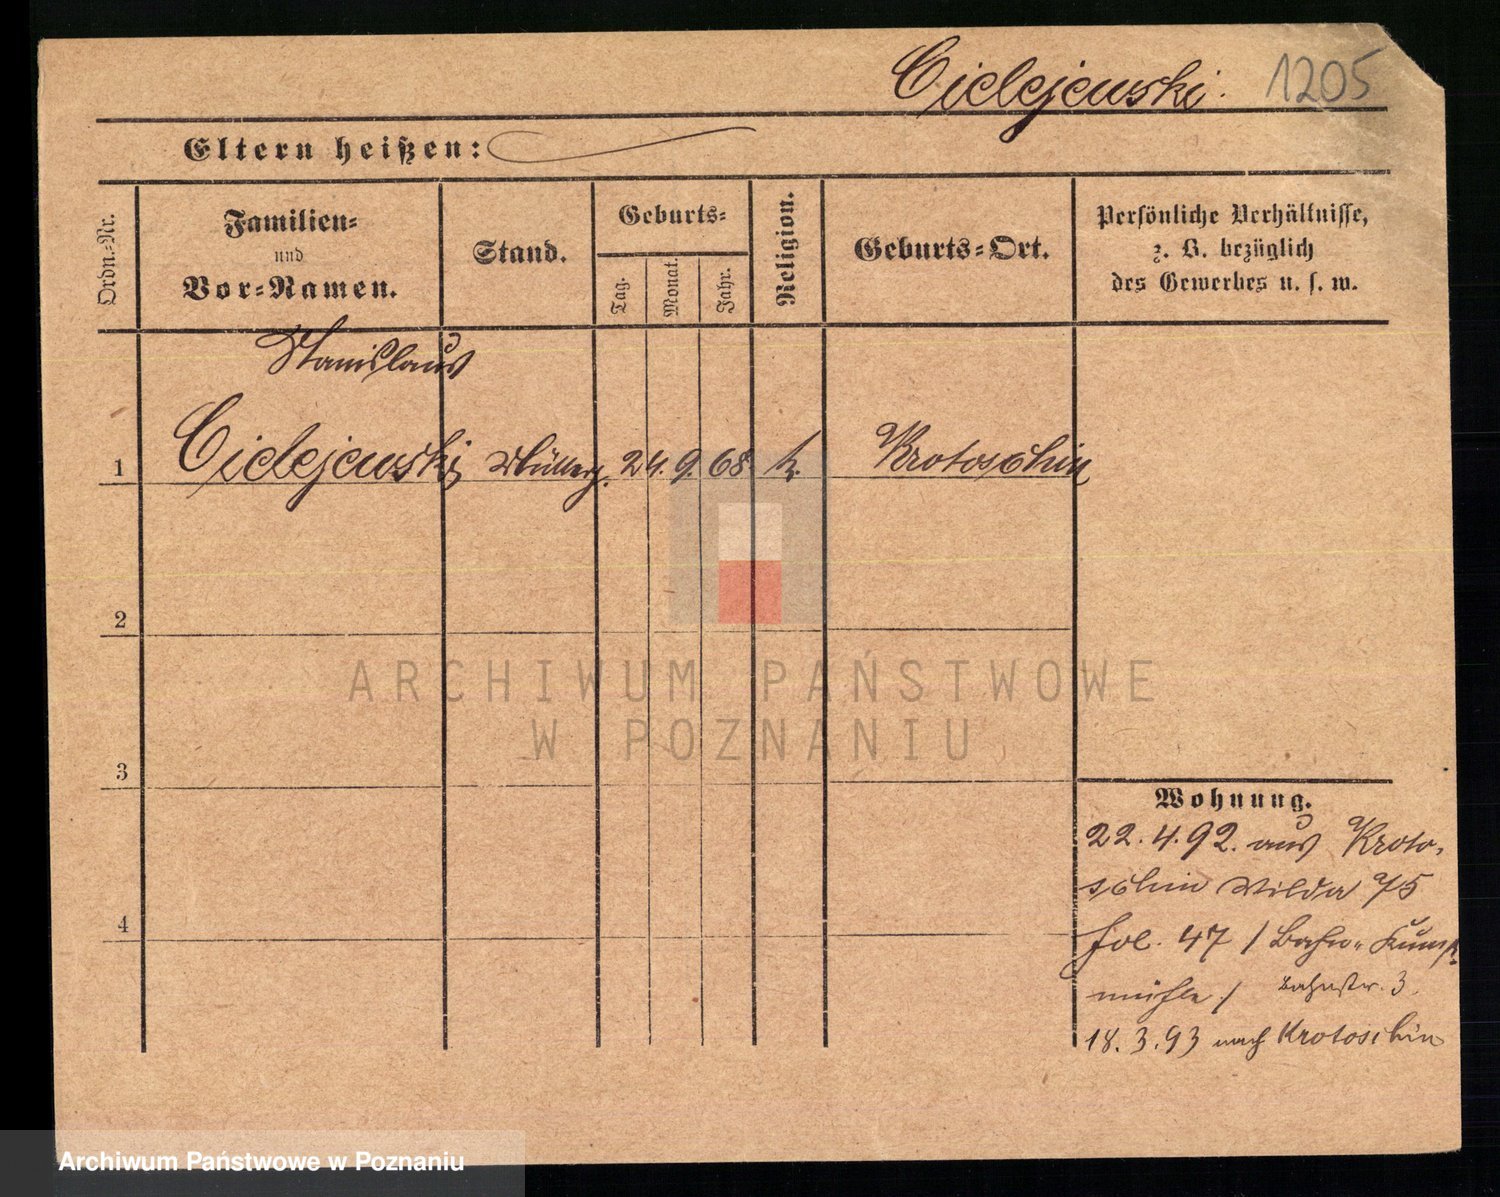 Cielejewski. 1205
Eltern heißen:
Ordn.=Nr.
Familien=
und
Vor=Namen.
Stand.
Geburts=
Tag.
Monat.
Jahr.
Religion.
Geburts=Ort.
Persönliche Verhältnisse,
z. B. bezüglich
des Gewerbes u. s. w.
Stanislaus
1 Cielejewski Müllerg. 24. 9. 68. k. Krotoschin
2
3
4
Wohnung.
22. 4. 92. aus Kroto-
schin Wilda 75
fol. 47 / Bahn-
mühle / Bahnstr. 3.
18. 3. 93 nach Krotoschin
ARCHIWUM PAŃSTWOWE
W POZNANIU
Archiwum Państwowe w Poznaniu